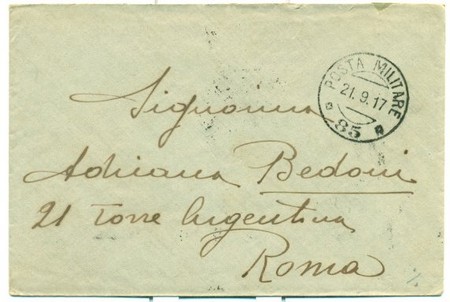 POSTA MILITARE
21.9.17
85
Signorina
Adriana Bedoni
21 Torre Argentina
Roma